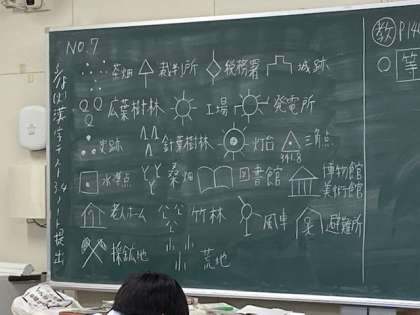 NO.7
茶畑 裁判所 税務署 城跡
広葉樹林 工場 発電所
史跡 針葉樹林 灯台 三角点
水準点 桑畑 図書館 博物館 美術館
老人ホーム 竹林 風車 避難所
採鉱地 荒地
漢字テスト34 ノート提出
教 P14